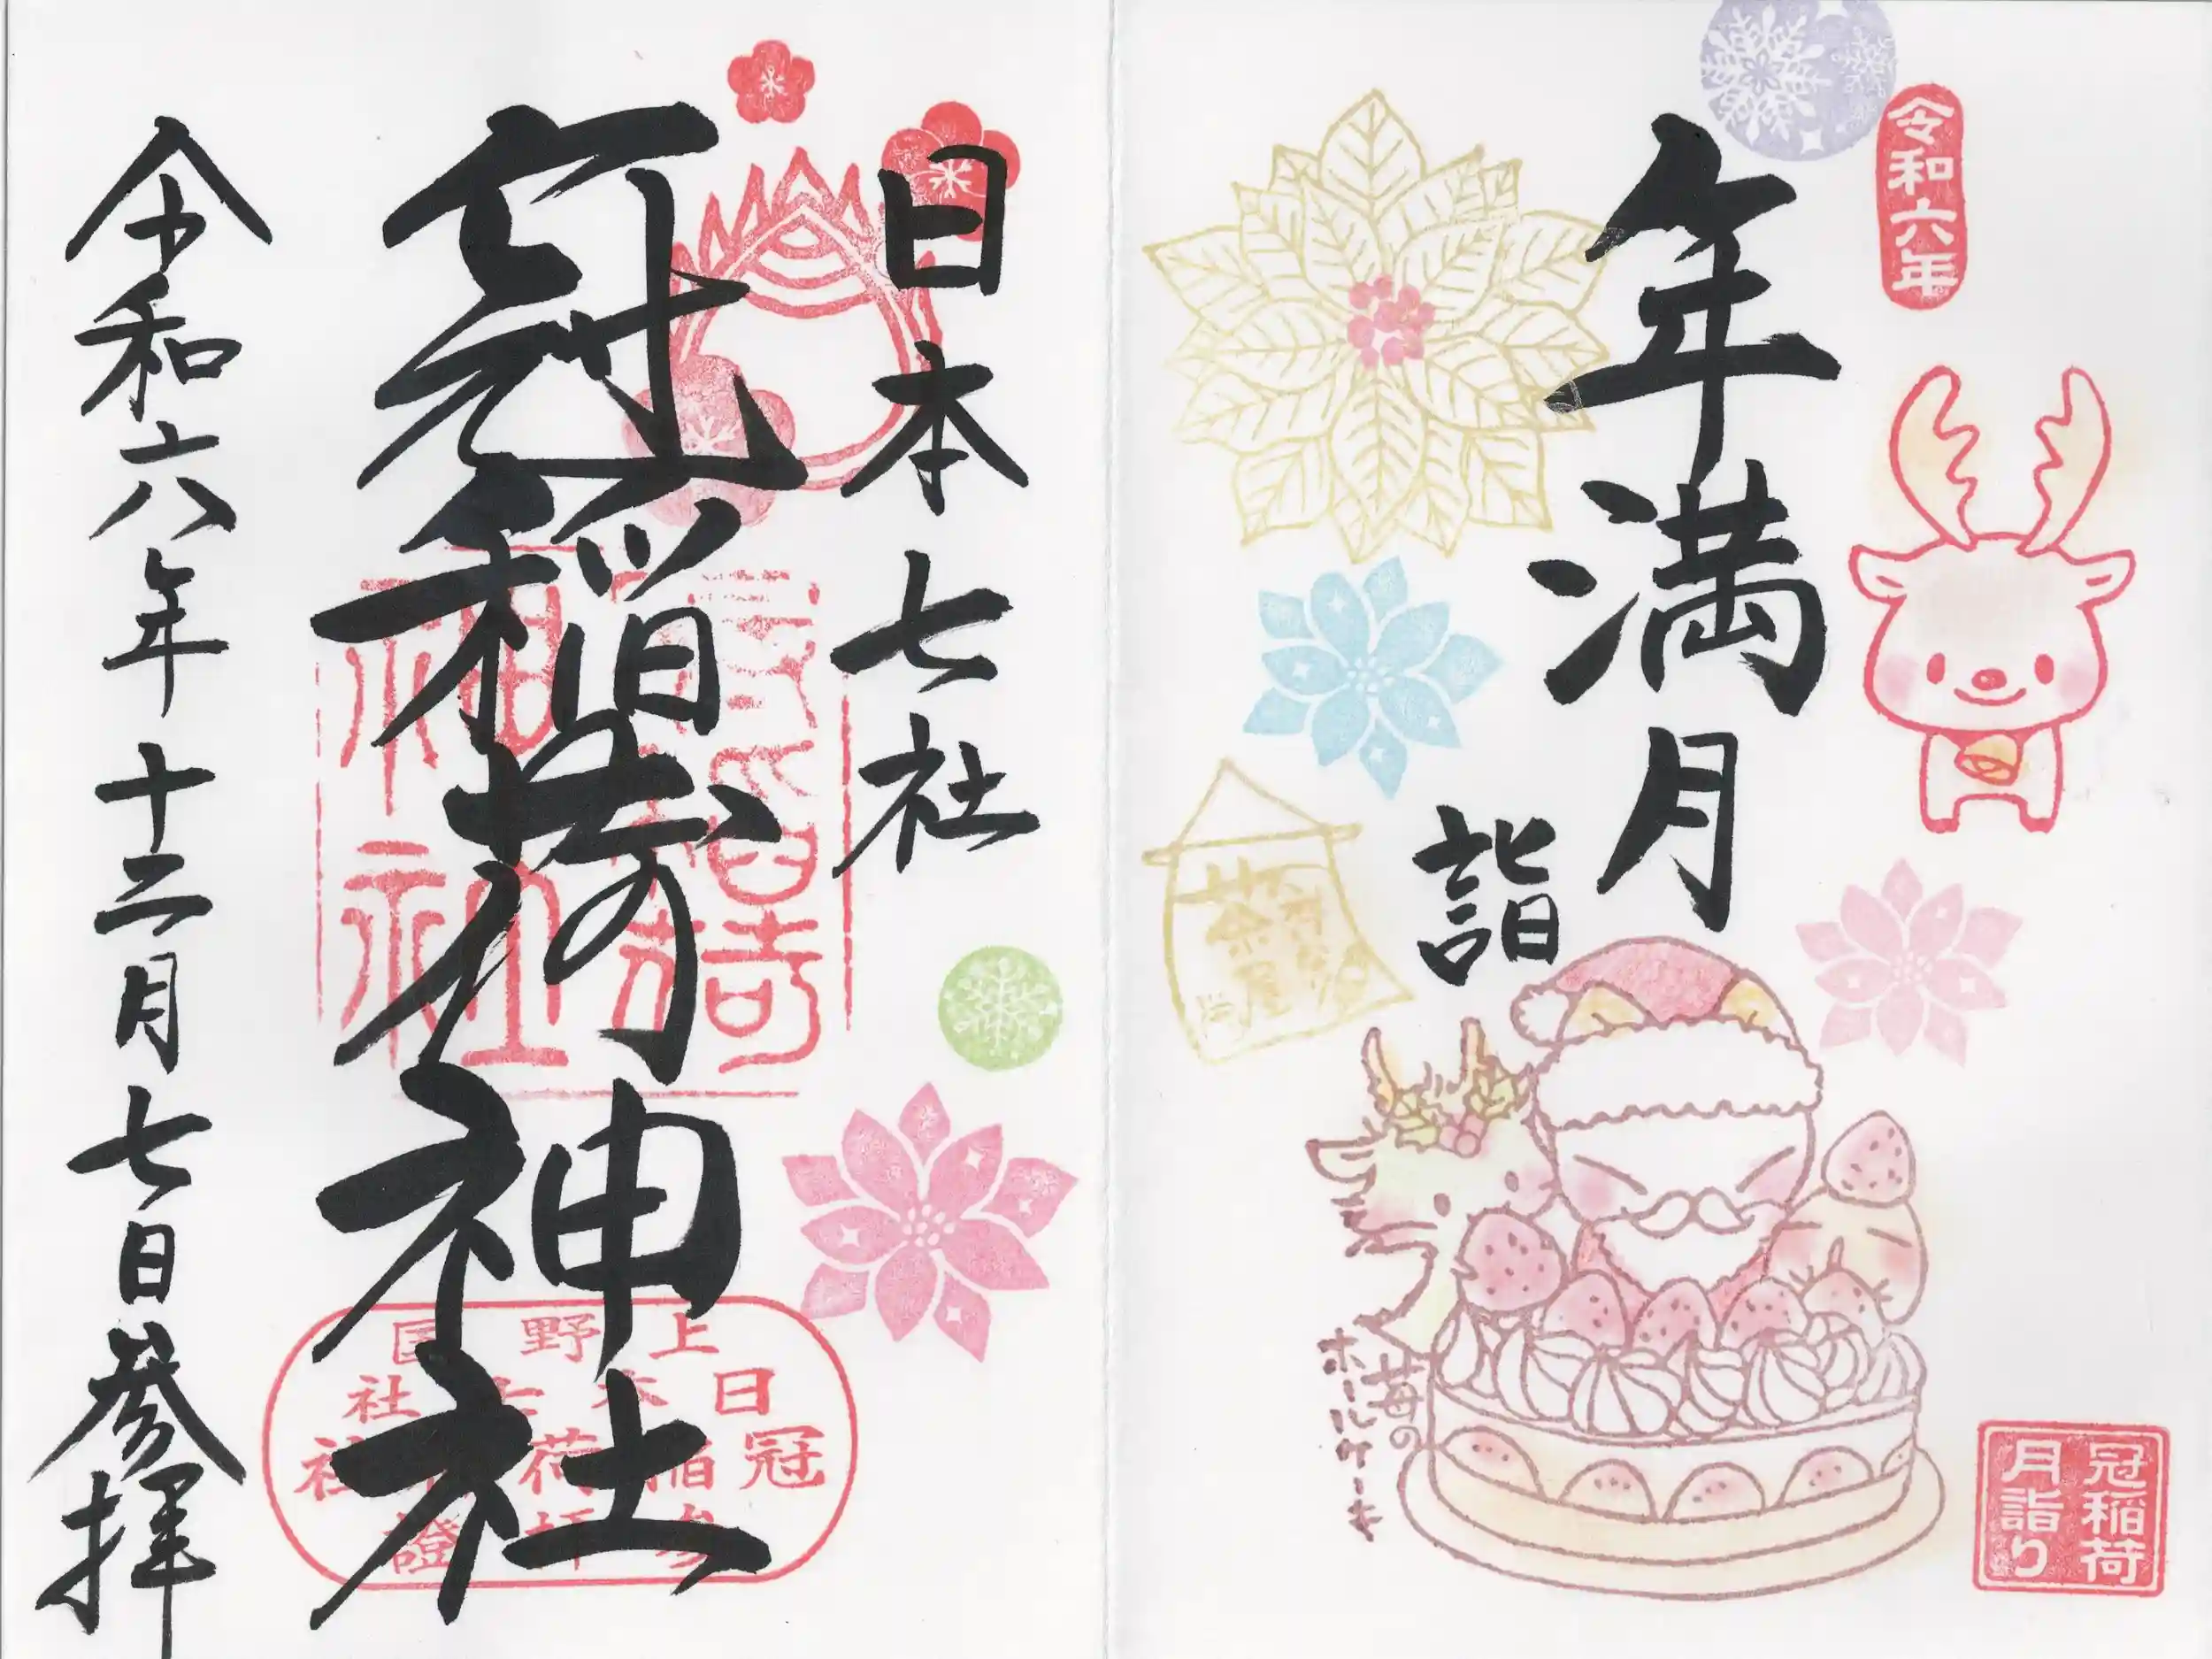 令和六年
年満月
詣
苺の
ホールケーキ
冠稲荷
月詣り
日本七社
冠稲荷神社
上野国
日本七社
冠稲荷神社
参拝證
令和六年十二月七日参拝